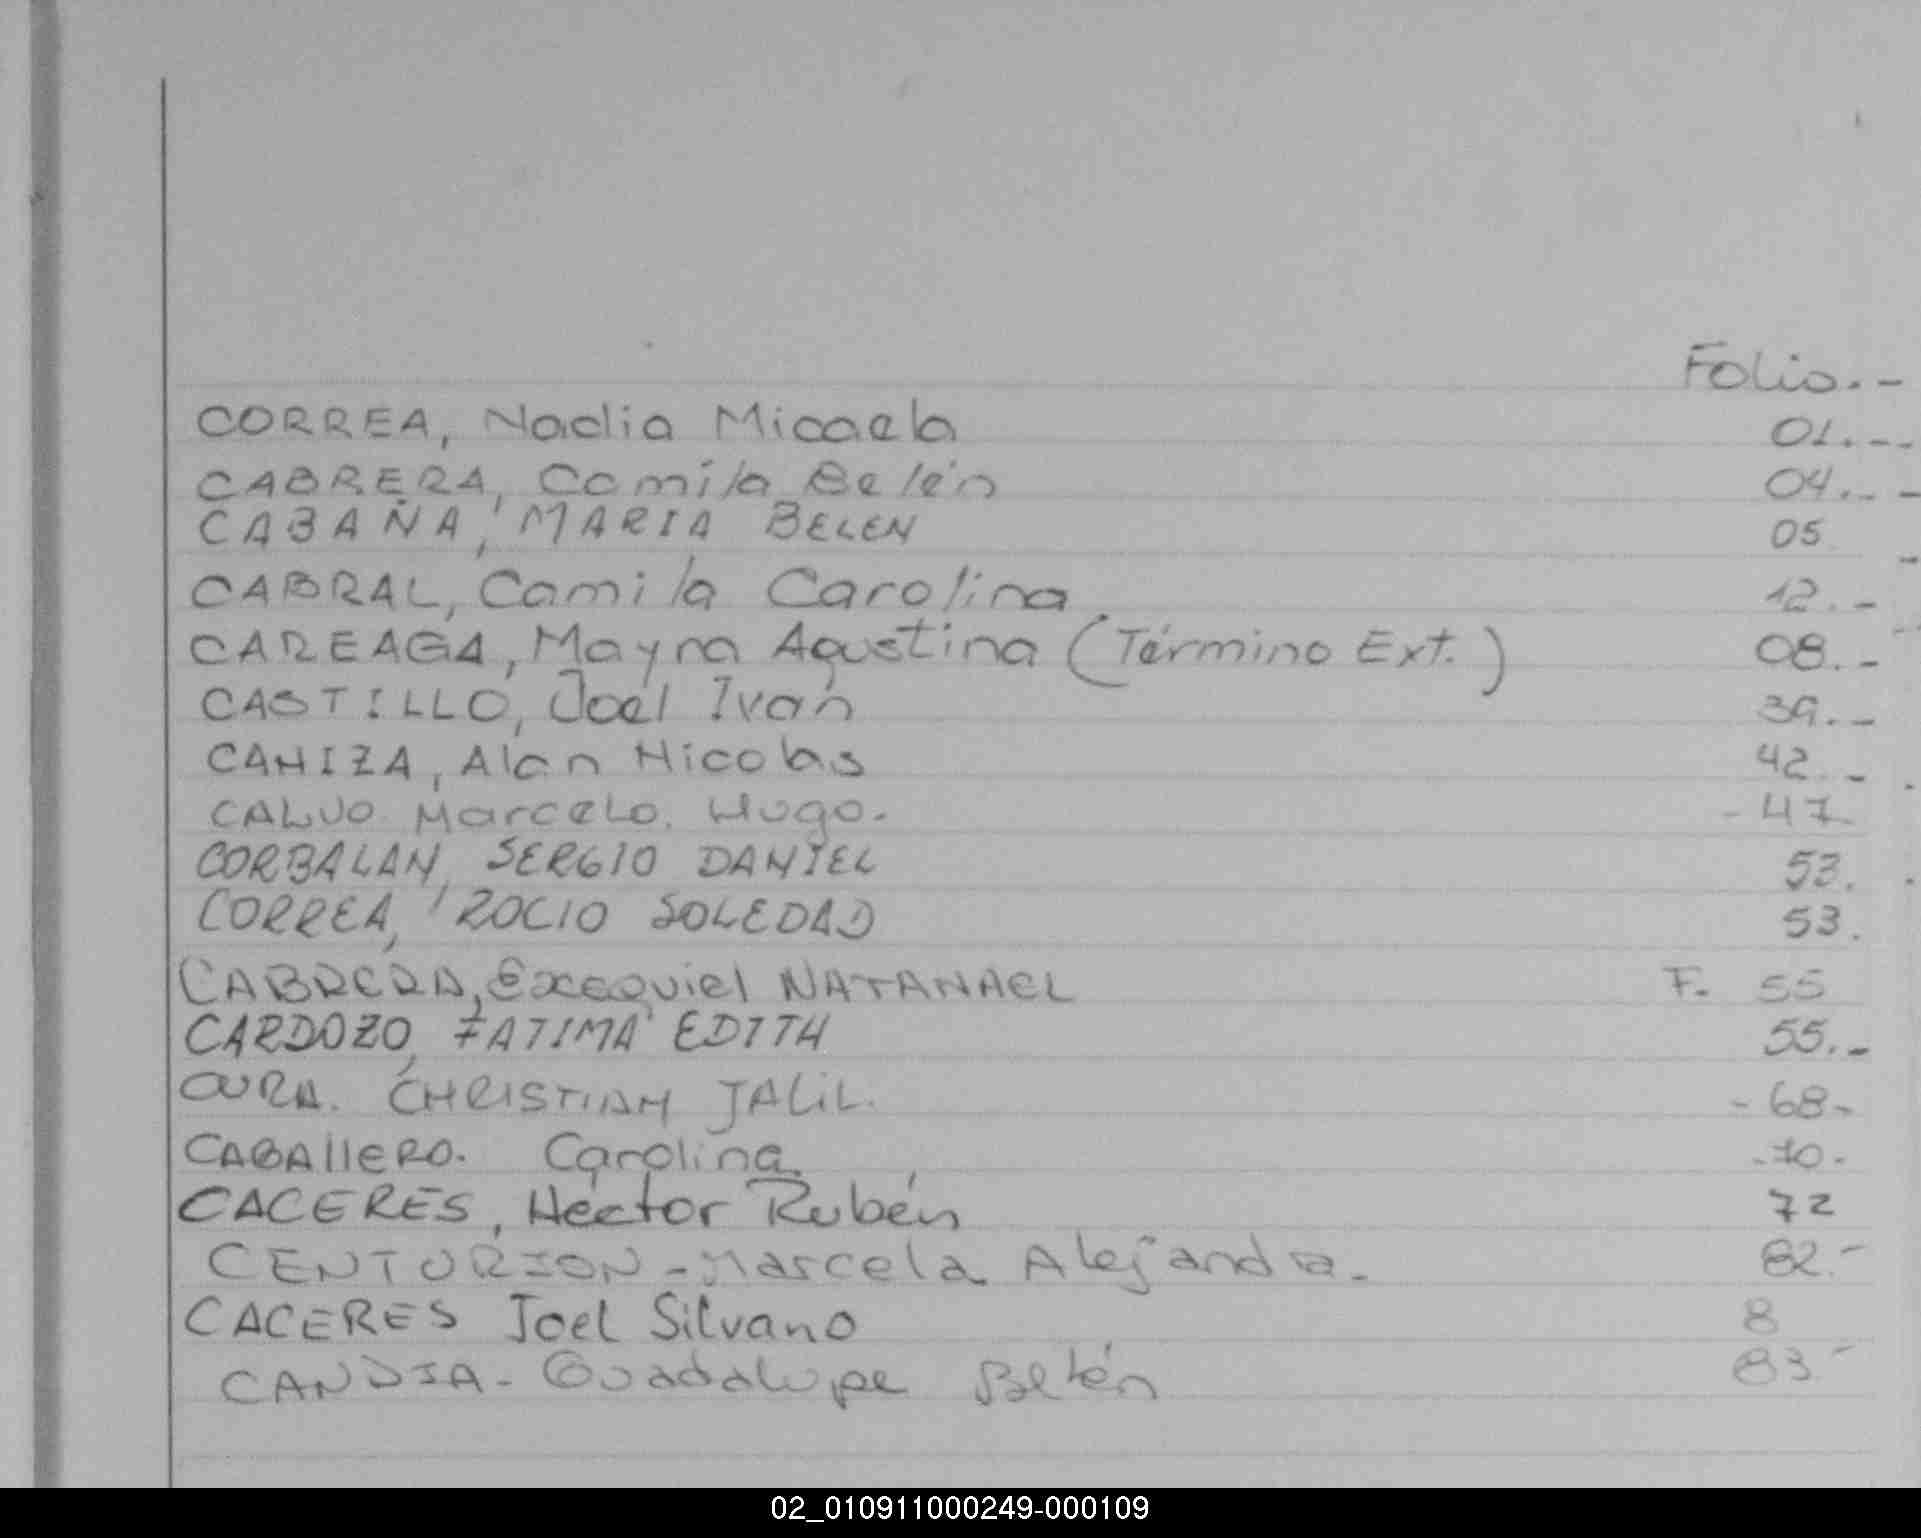 Folio.-
CORREA, Nadia Micaela 01.--
CABRERA, Camila Belén 04.- -
CABAÑA, MARIA BELEN 05 -
CABRAL, Camila Carolina. 12.-
CAREAGA, Mayra Agustina (Término Ext.) 08.-
CASTILLO, Joel Iván 39.-
CAHIZA, Alan Nicolas 42.-
CALVO. Marcelo. Hugo. - 47
CORBALAN, SERGIO DANIEL 53.
CORREA, ROCIO SOLEDAD 53.
CABRERA, Exequiel NATANAEL F. 55
CARDOZO, FATIMA EDITH 55.-
CURA. CHRISTIAN JALIL. - 68-
CABAllERO. Carolina. -70-
CACERES, Héctor Rubén 72
CENTURION - Marcela Alejandra. 82.-
CACERES Joel Silvano 8
CANDIA - Guadalupe Belén 83-
02_010911000249-000109